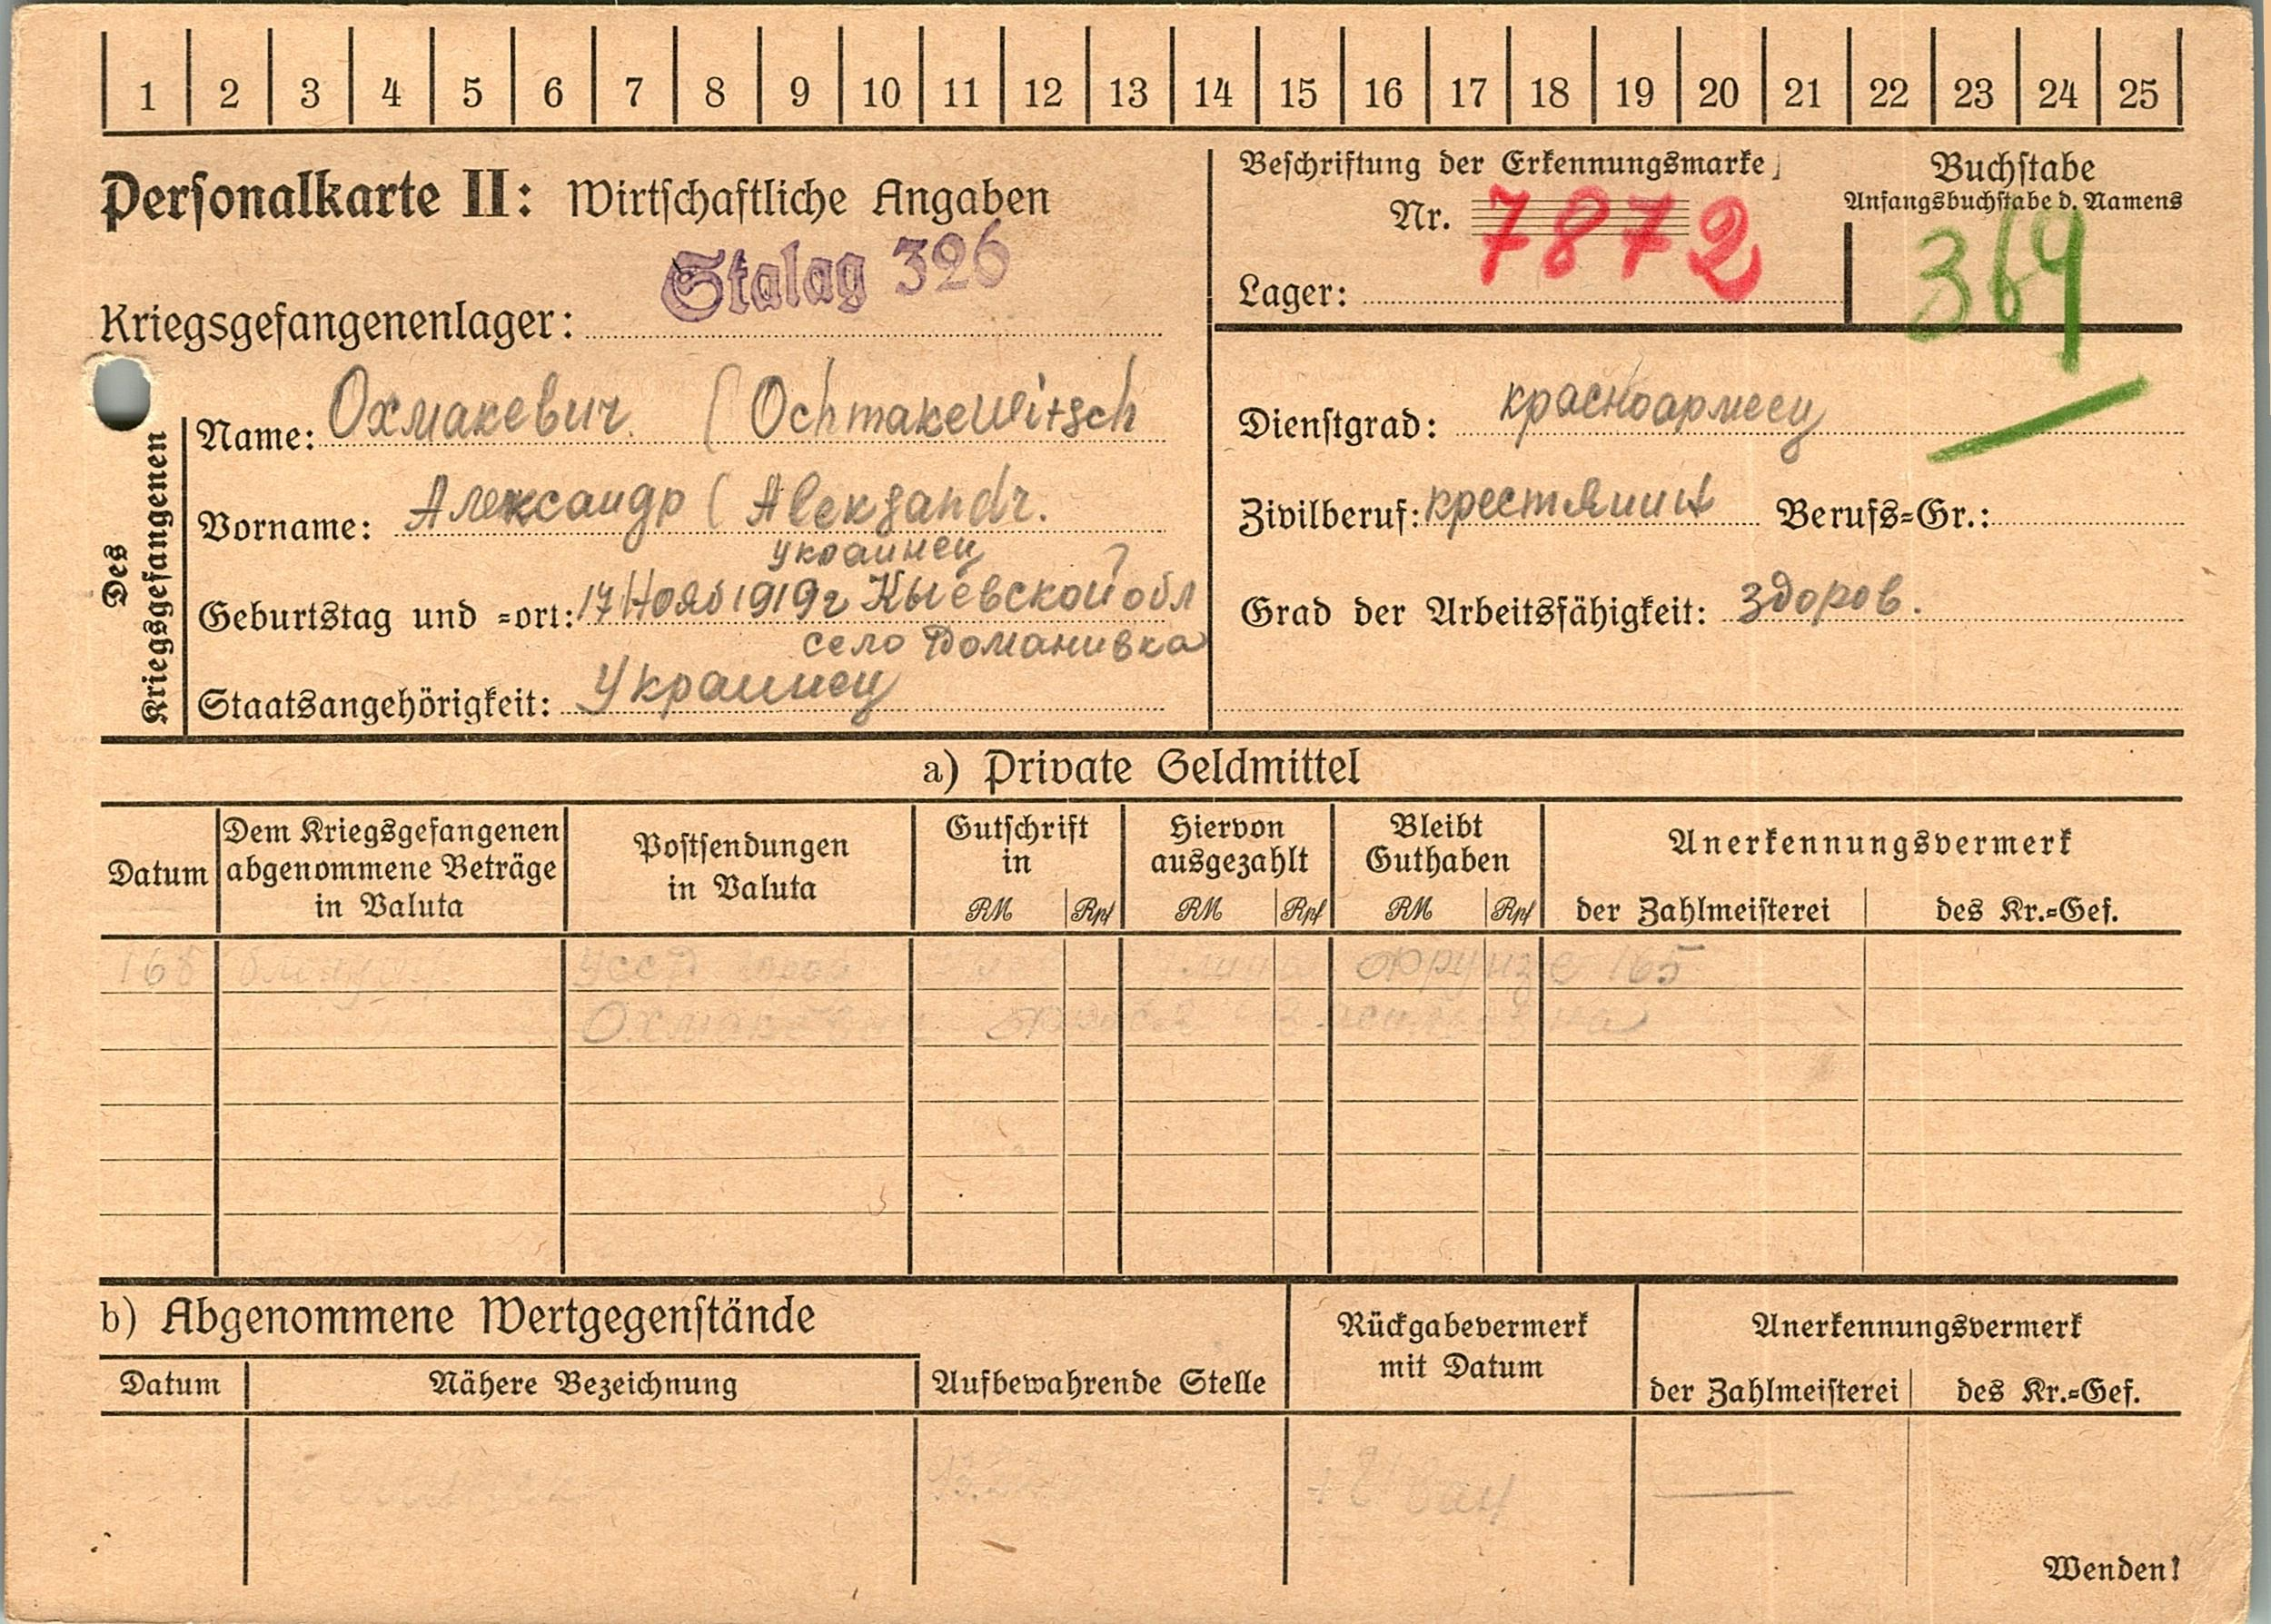 1 2 3 4 5 6 7 8 9 10 11 12 13 14 15 16 17 18 19 20 21 22 23 24 25
Personalkarte II: Wirtschaftliche Angaben
Stalag 326
Kriegsgefangenenlager:
Beschriftung der Erkennungsmarke
Nr. 7872
Lager:
Buchstabe
Anfangsbuchstabe d. Namens
369
Des Kriegsgefangenen
Name: Охмакевич (Ochmakewitsch
Vorname: Александр (Aleksandr.
украинец
Geburtstag und =ort: 17 Нояб 1919г Кыевской обл
село Доманивка
Staatsangehörigkeit: Украинец
Dienstgrad: красноармеец
Zivilberuf: крестянин Berufs=Gr.:
Grad der Arbeitsfähigkeit: здоров.
a) Private Geldmittel
Datum
Dem Kriegsgefangenen
abgenommene Beträge
in Valuta
Postsendungen
in Valuta
Gutschrift
in
RM Rpf
Hiervon
ausgezahlt
RM Rpf
Bleibt
Guthaben
RM Rpf
Anerkennungsvermerk
der Zahlmeisterei des Kr.=Gef.
165 УССР Фрунзе 165
b) Abgenommene Wertgegenstände
Datum Nähere Bezeichnung Aufbewahrende Stelle
Rückgabevermerk
mit Datum
Anerkennungsvermerk
der Zahlmeisterei des Kr.=Gef.
Wenden!